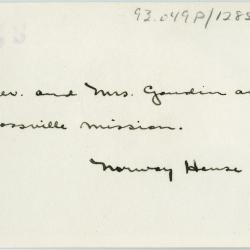 93.049P/1285
ev. and Mrs. Gaudin a
ossville mission.
Norway House